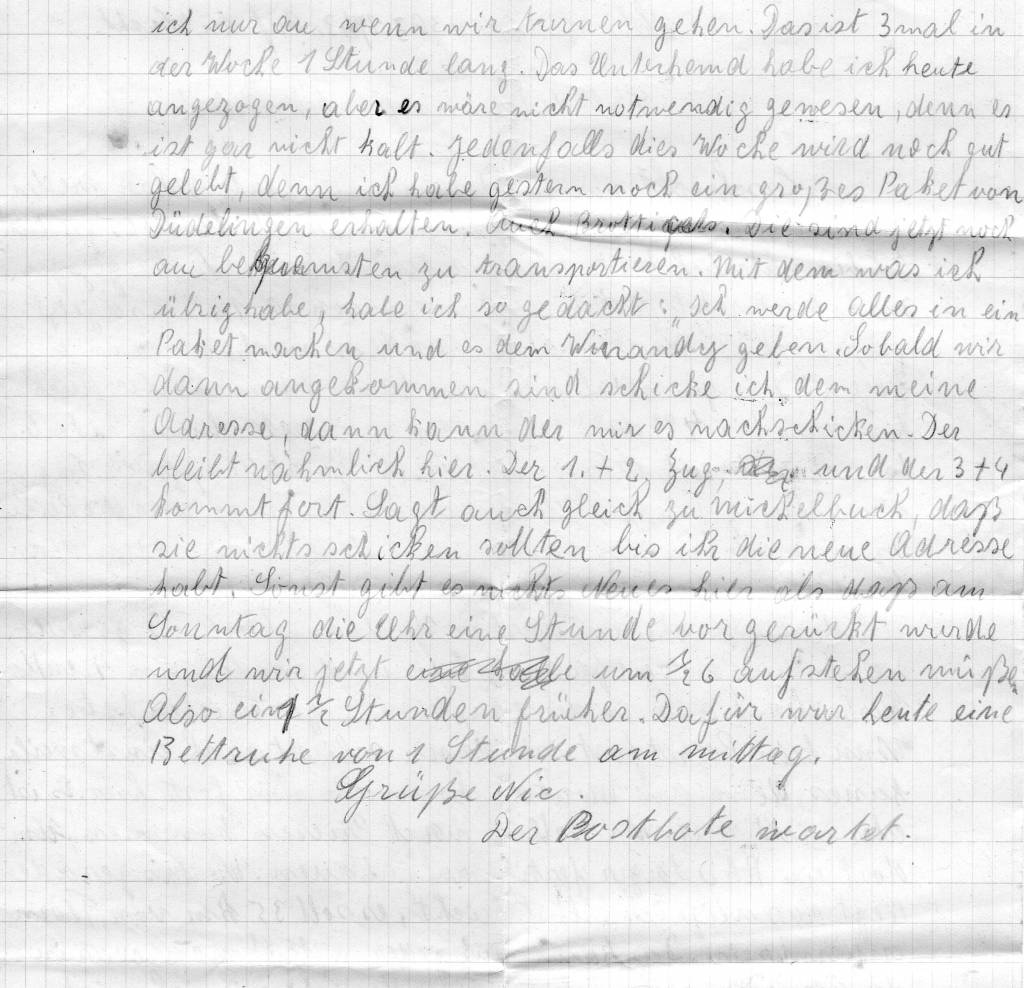 ich nur an wenn wir turnen gehen. Das ist 3 mal in
der Woche 1 Stunde lang. Das Unterhemd habe ich heute
angezogen, aber es wäre nicht notwendig gewesen, denn es
ist gar nicht kalt. Jedenfalls dies Woche wird noch gut
gelebt, denn ich habe gestern noch ein großes Paket von
Düdelingen erhalten. Auch . Die sind jetzt noch
am bequemsten zu transportieren. Mit dem was ich
übrig habe, habe ich so gedacht: „Ich werde alles in ein
Paket machen und es dem Winandy geben. Sobald wir
dann angekommen sind schicke ich dem meine
Adresse, dann kann der mir es nachschicken. Der
bleibt nähmlich hier. Der 1. + 2. Zug, und der 3 + 4
kommt fort. Sagt auch gleich zu Mickelbuch, daß
sie nichts schicken sollten bis ihr die neue Adresse
habt. Sonst gibt es nichts Neues hier als daß am
Sonntag die Uhr eine Stunde vorgerückt wurde
und wir jetzt um ½ 6 aufstehen müße
Also ein 1 ½ Stunden früher. Dafür war heute eine
Bettruhe von 1 Stunde am mittag.
Grüße Nic.
Der Postbote wartet.